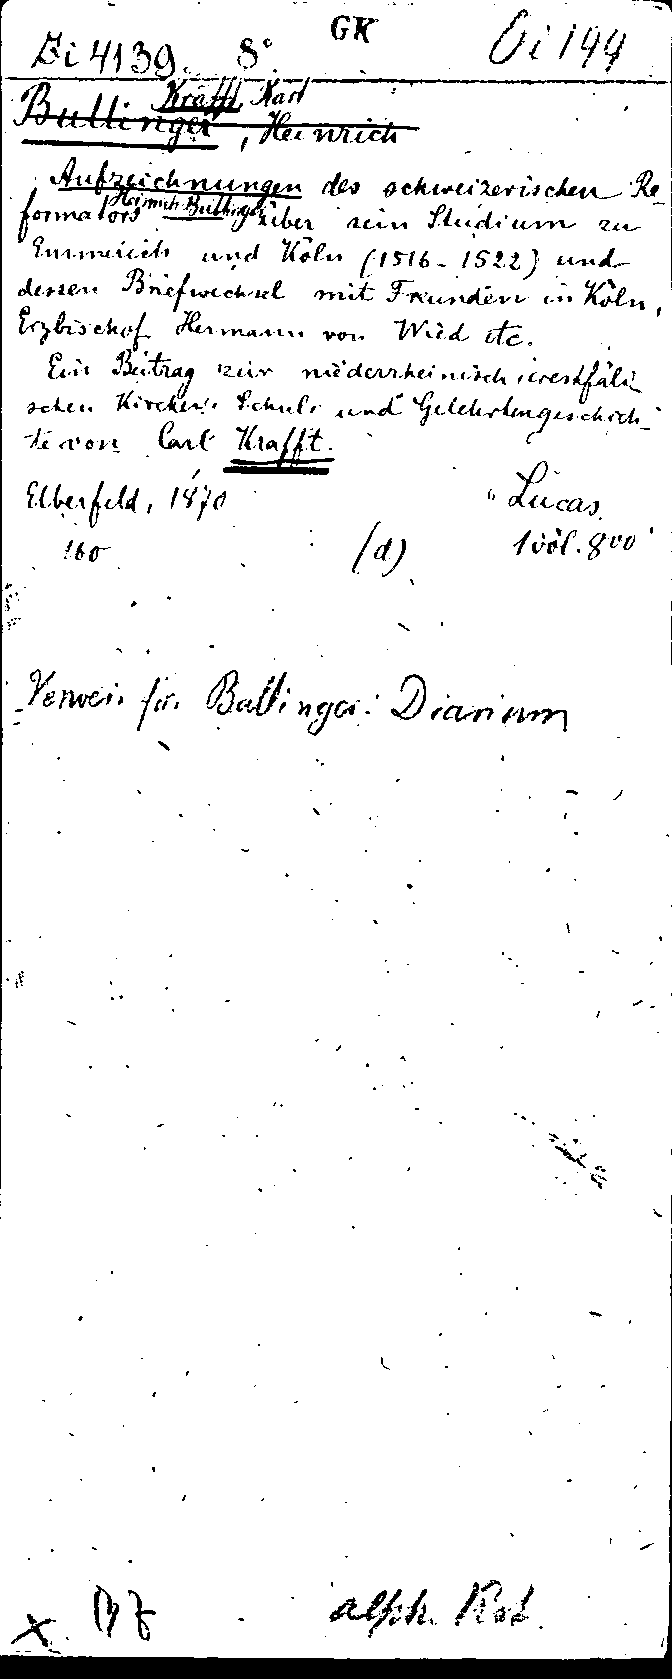 GK
Bi 4139. 8° Gi 144
Krafft, Karl
Bullinger, Heinrich
Aufzeichnungen des schweizerischen Re-
formators Heinrich Bullinger über sein Studium zu
Emmerich und Köln (1516-1522) und
dessen Briefwechsel mit Freunden in Köln,
Erzbischof Hermann von Wied etc.
Ein Beitrag zur niederrheinisch westfäli
schen Kirchen- Schul- und Gelehrtengeschich-
te von Carl Krafft.
Elberfeld, 1870 Lucas.
160 (d) 1 vol. 8vo
Verweis für Bullinger: Diarium
x alph. Kat.